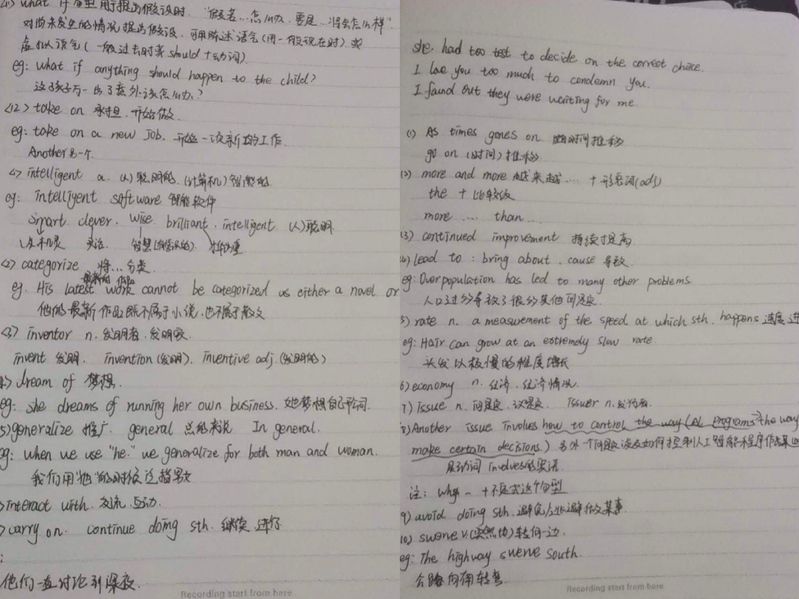 (1) what if 句型用于提出假设时, "假若…怎么办, 要是…将会怎么样"
对尚未发生的情况提出假设, 可用陈述语气(用一般现在时)或
虚拟语气(一般过去时或should+动词).
eg: what if anything should happen to the child?
这了孩子万一出了意外该怎么办?
(12) take on 承担. 开始做
eg: take on a new Job. 开始一次新的工作.
Another 另一个
intelligent a. (人)聪明的. (计算机)智能的
eg: intelligent software 智能软件
smart clever. wise brilliant. intelligent (人)聪明
灵活
(2) categorize 将…分类
最新的 作品
eg. His latest work cannot be categorized as either a novel or
他的最新作品既不属于小说, 也不属于散文
(3) inventor n. 发明者, 发明家
invent 发明. invention (发明). inventive adj. (发明的)
dream of 梦想.
eg: she dreams of running her own business. 她梦想自己开公司.
5) generalize 推广. general 总的来说 In general.
eg: when we use "he." we generalize for both man and woman.
我们用"他"的时候泛指男女
interact with. 交流. 互动
carry on. continue doing sth. 继续. 进行
他们一直讨论到深夜.
Recording start from here
she had too test to decide on the correct choice.
I love you too much to condemn you.
I found out they were waiting for me
(1) As times goes on 随时间推移
go on (时间)推移.
(2) more and more 越来越… + 形容词(adj)
the + 比较级
more … than…
(3) continued improvement 持续提高
lead to : bring about. cause 导致
eg: Overpopulation has led to many other problems
人口过多导致了很多其他问题
5) rate n. a measurement of the speed at which sth. happens 速度
eg: Hair can grow at an extremely slow rate.
头发以极慢的速度增长
6) economy n. 经济. 经济情况
7) issue n. 问题, 议题. issuer n. 发行者
8) Another issue involves how to control the way (AI programs the way
make certain decisions) 另外一个问题涉及如何控制人工智能程序作出某些
involves
注: why + 不定式这个句型
9) avoid doing sth. 避免/逃避做某事
10) swerve v. (突然地)转向一边
eg: The highway swerve south.
公路向南转弯
Recording start from here